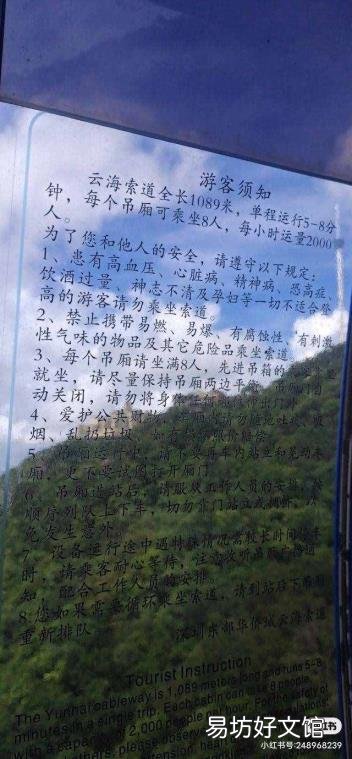 游客须知
云海索道全长1089米，单程运行5-8分
钟，每个吊厢可乘坐8人，每小时运量2000
人。
为了您和他人的安全，请遵守以下规定：
1、患有高血压、心脏病、精神病、恐高症、
饮酒过量、神志不清及孕妇等一切不适合登
高的游客请勿乘坐索道。
2、禁止携带易燃、易爆、有腐蚀性、有刺激
性气味的物品及其它危险品乘坐索道。
3、每个吊厢请坐满8人，先进吊箱的
就坐，请尽量保持吊厢两边平衡，吊厢门自
动关闭，请勿将身体任何
4、爱护公共财物，
烟、乱扔垃圾，如有 照价赔偿
5、吊厢运行中，请不要在车内站立和晃动吊
厢，更不要试图打开厢门
6、吊厢进站后，请服从工作人员的安排，按
顺序列队上下车，切勿靠门站立或拥挤，以
免发生意外。
7、设备运行途中遇特殊情况需较长时间停车
时，请乘客耐心等待，注意收听吊厢广播通
知，配合工作人员的安排。
8、您如果需要循环乘坐索道，请到站后下吊厢
重新排队
深圳东部华侨城云海索道
Tourist Instruction
The Yunhai cableway is 1,089 meters long and runs 5-8
minutes in a single trip. Each cabin can take 8 people,
with a capacity of 2,000 people per hour. For the safety of
others, please observe
tension, heart
易坊好文馆
小红书
小红书号:248968239